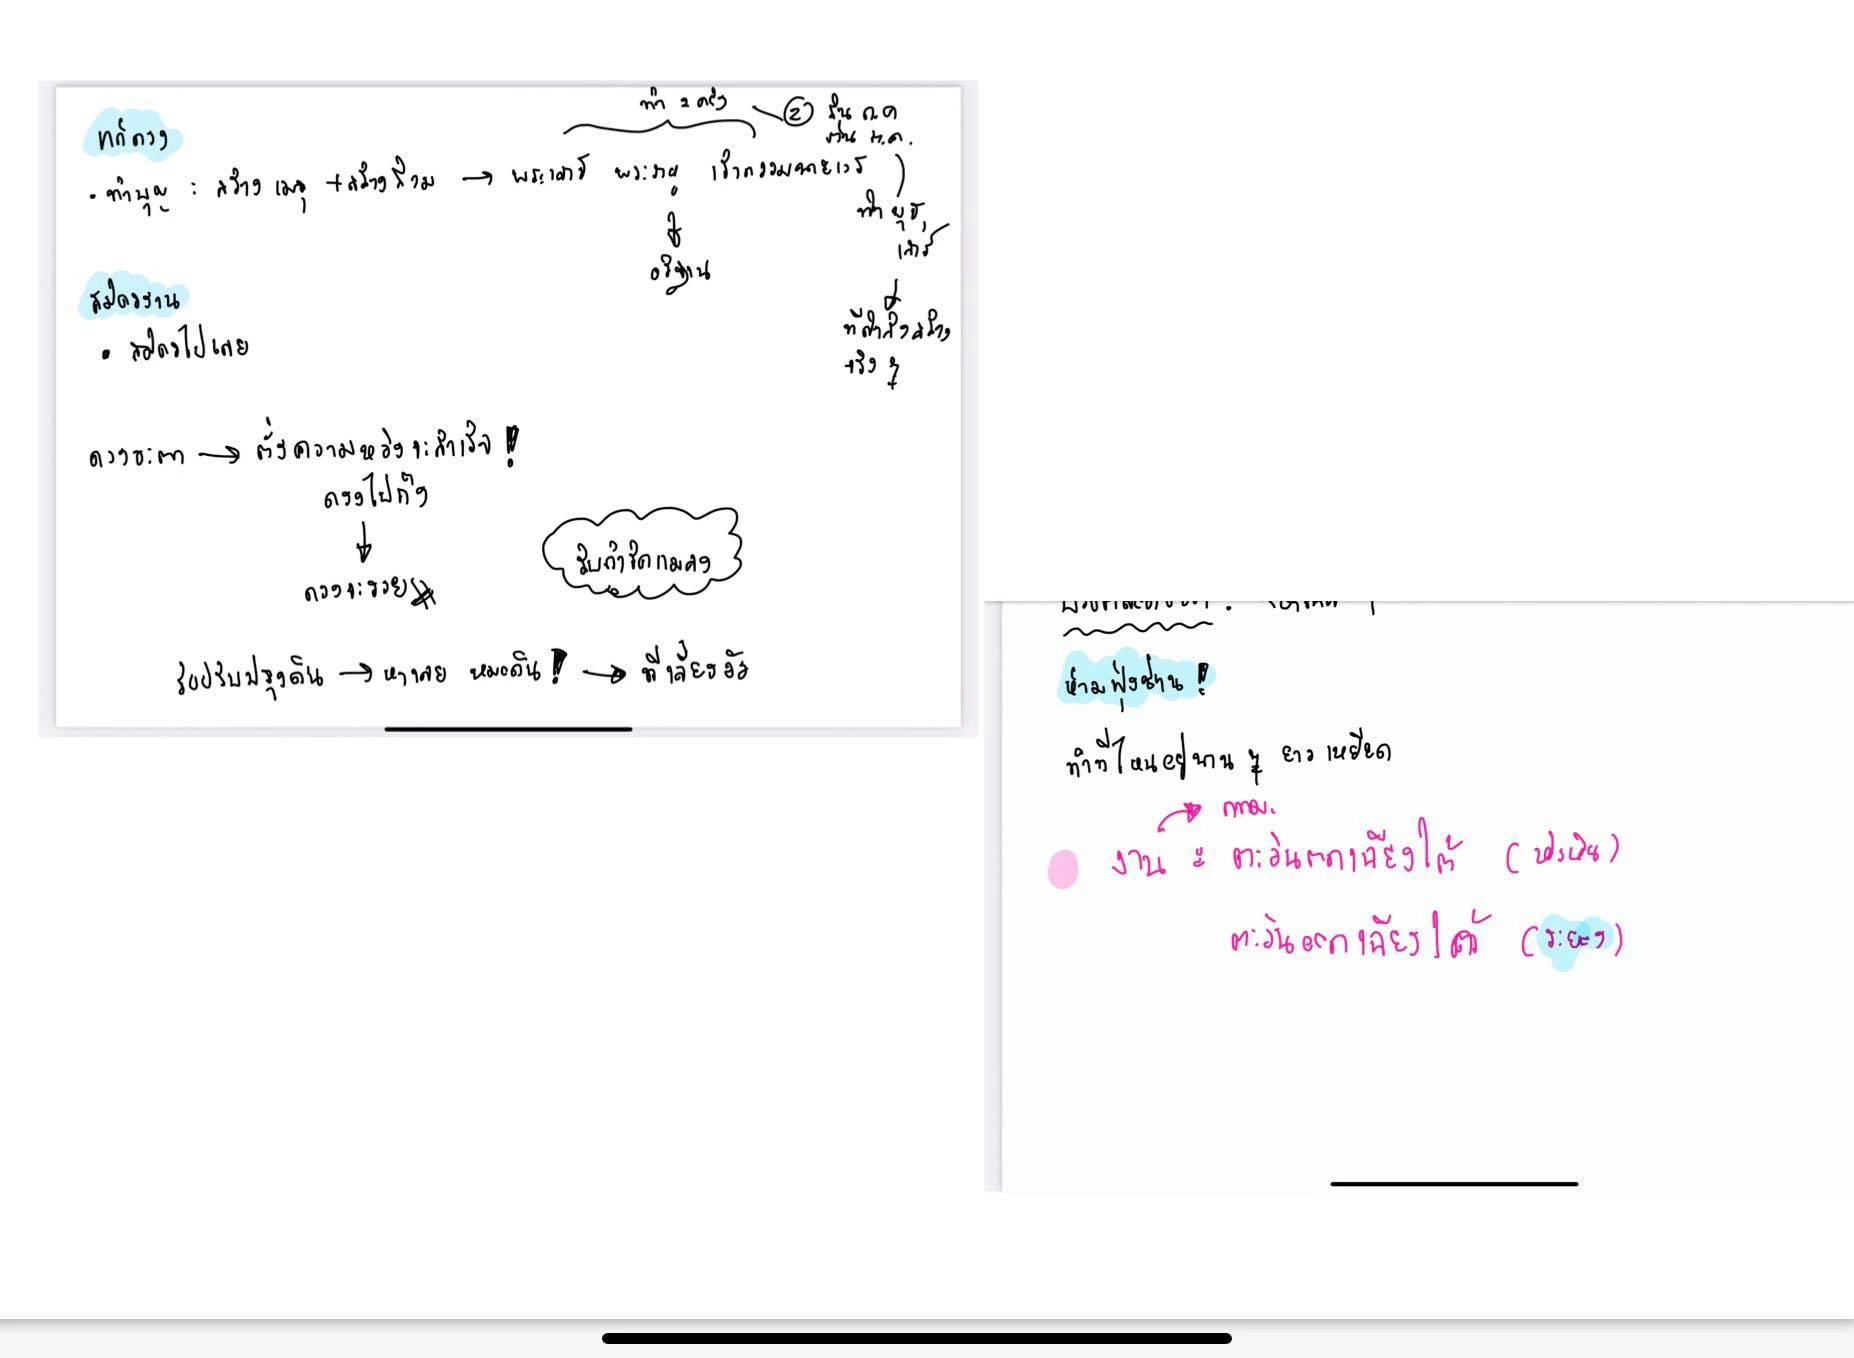 ทำ 2 ครั้ง
② ต้น ต.ค
แก้ดวง
• ทำบุญ : สร้างเมรุ + สร้างส้วม → พระเสาร์ พระราหู เจ้ากรรมนายเวร
ทำ พุธ,
เสาร์
อธิษฐาน
ที่กำลังสร้าง
จริง ๆ
สมัครงาน
• สมัครไปเลย
ดวงชะตา → ตั้งความหวังจะสำเร็จ!
ตรงไปตั้ง
ดวงจะรวย
รับกำจัดแมลง
รับปรับปรุงดิน → หาเลย หมอดิน! →
ห้ามฟุ้งซ่าน!
ทำที่ไหนอยู่นาน ๆ ยาวเหยียด
กทม.
งาน = ตะวันตกเฉียงใต้
ตะวันออกเฉียงใต้ (ระยอง)